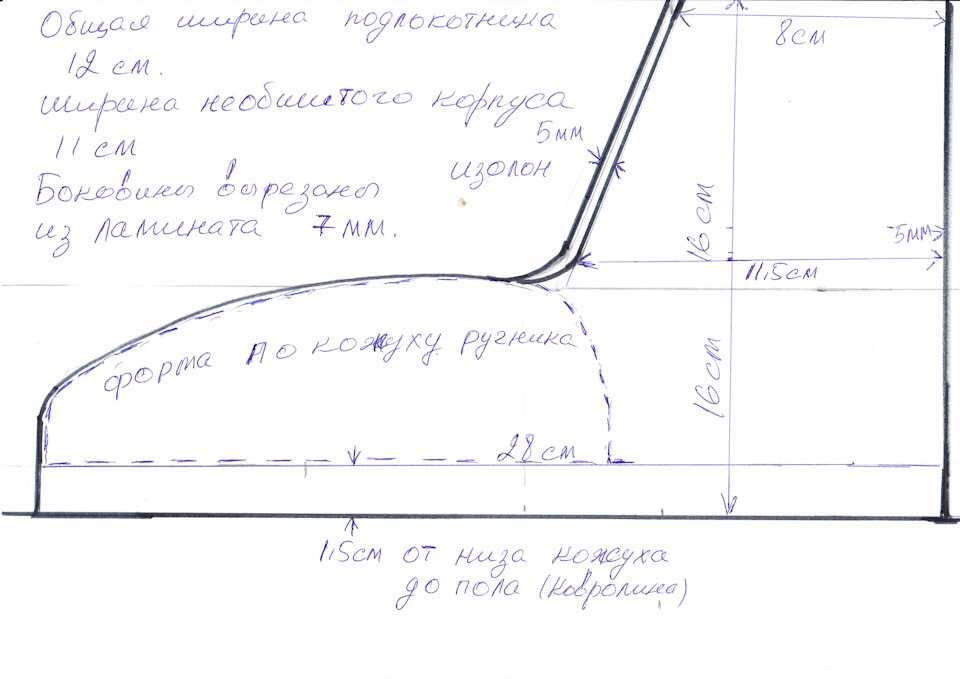 Общая ширина подлокотника
12 см.
ширина необшитого корпуса
11 см
Боковины вырезаны
из ламината 7 мм.
8 см
5 мм
изолон
16 см
5 мм
11,5 см
форма по кожуху ручника
16 см
28 см
1,5 см от низа кожуха
до пола (ковролина)